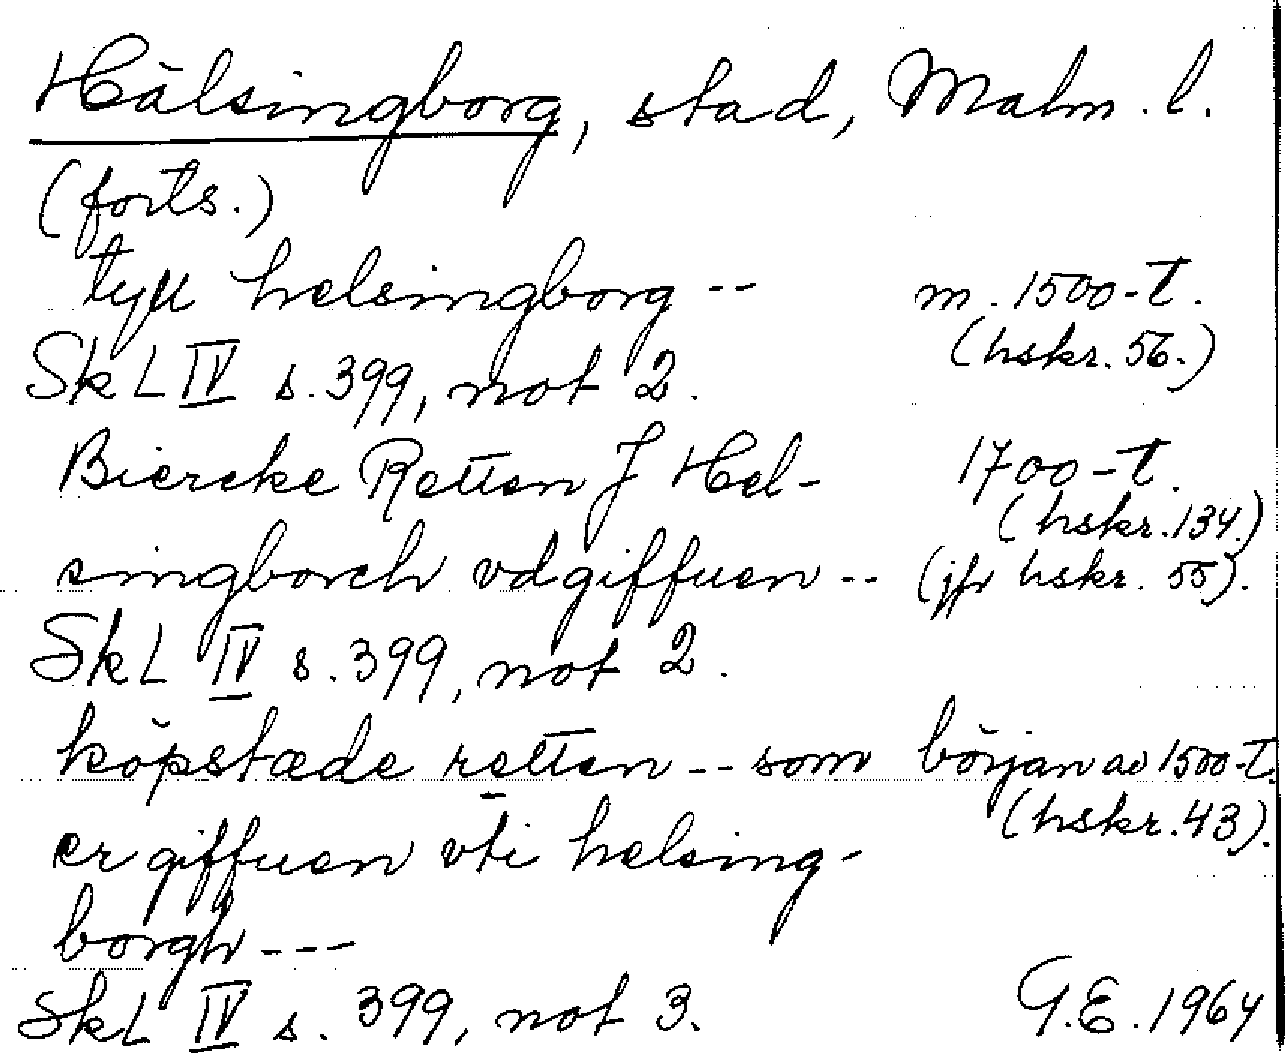 Hälsingborg, stad, Malm. l.
(forts.)
tyll helsingborg -- m. 1500-t.
(hskr. 56.)
SkL IV s. 399, not 2.
Biercke Retten J Hel- 1700-t.
(hskr. 134.)
singborch vdgiffuen -- (jfr hskr. 55).
SkL IV s. 399, not 2.
köpstæde retten -- som början av 1500-t.
(hskr. 43).
er giffuen vti helsing-
borgh ---
SkL IV s. 399, not 3. G.E. 1964